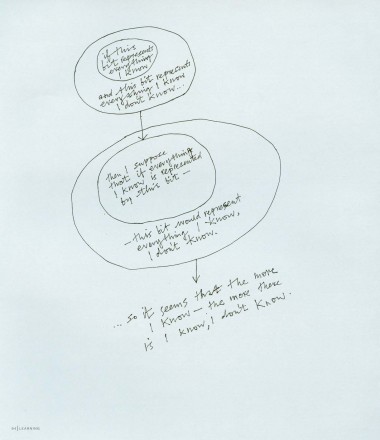 if this
bit represents
everything
I know
and this bit represents
everything I know
I don't know...
then I suppose
that if everything
I know is represented
by this bit —
— this bit would represent
everything I know,
I don't know.
... so it seems that the more
I know — the more there
is I know, I don't know.
LEARNING